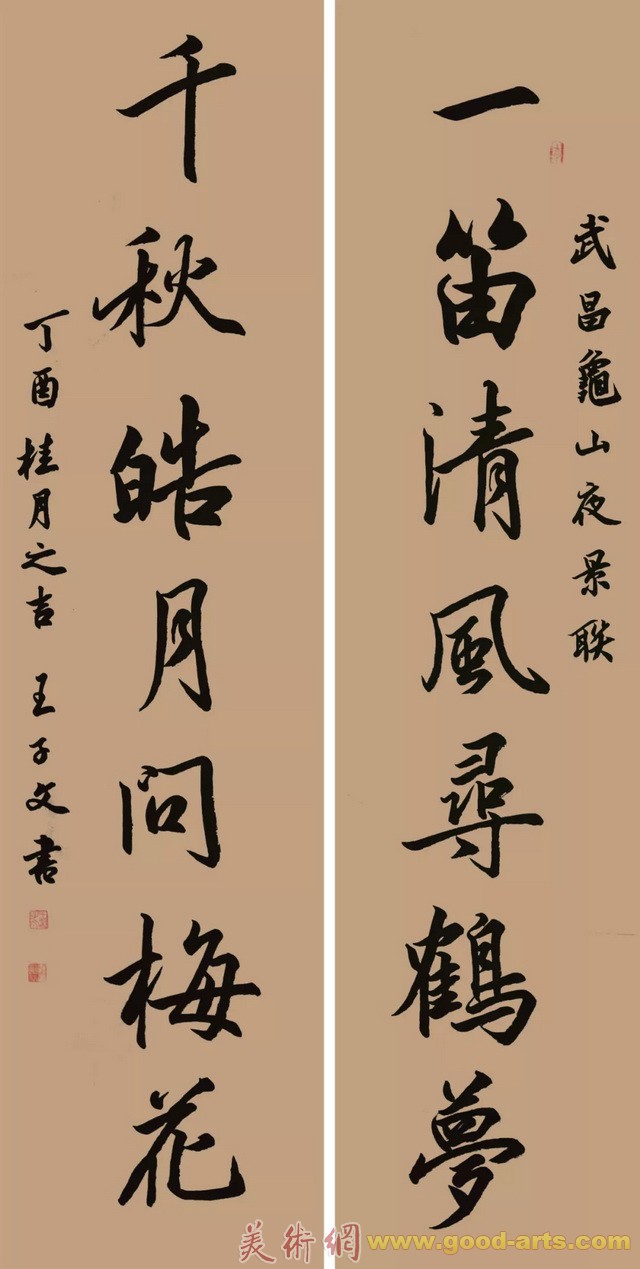 武昌龜山夜景聯
一笛清風尋鶴夢
千秋皓月問梅花
丁酉桂月之吉 王子文書
美術網
www.good-arts.com